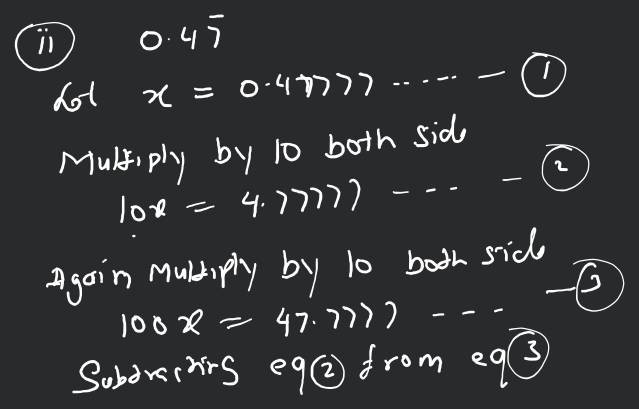 (ii) 0.47̄
Let x = 0.47777 ...... — (1)
Multiply by 10 both side
10x = 4.77777 - - - — (2)
Again Multiply by 10 both side
100x = 47.7777 - - - — (3)
Subtracting eq (2) from eq (3)